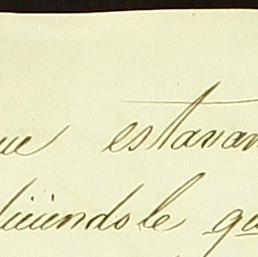 ue estavan
diciendole qu